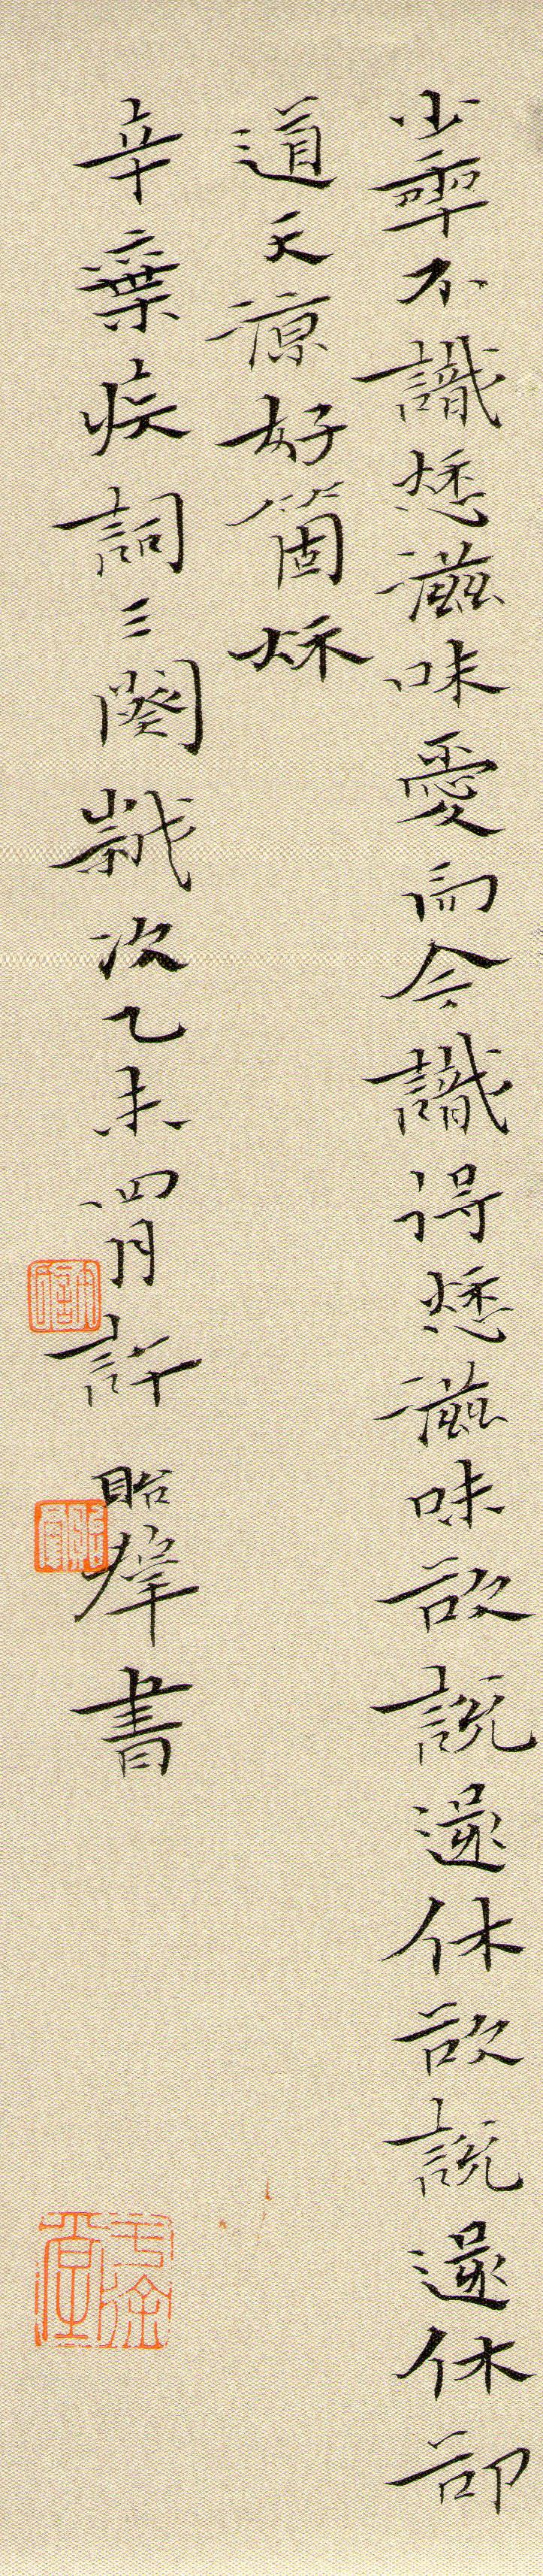 少年不識愁滋味愛而今識得愁滋味欲說還休欲說還休卻
道天涼好箇秋
辛棄疾詞三闋歲次乙未四月許書